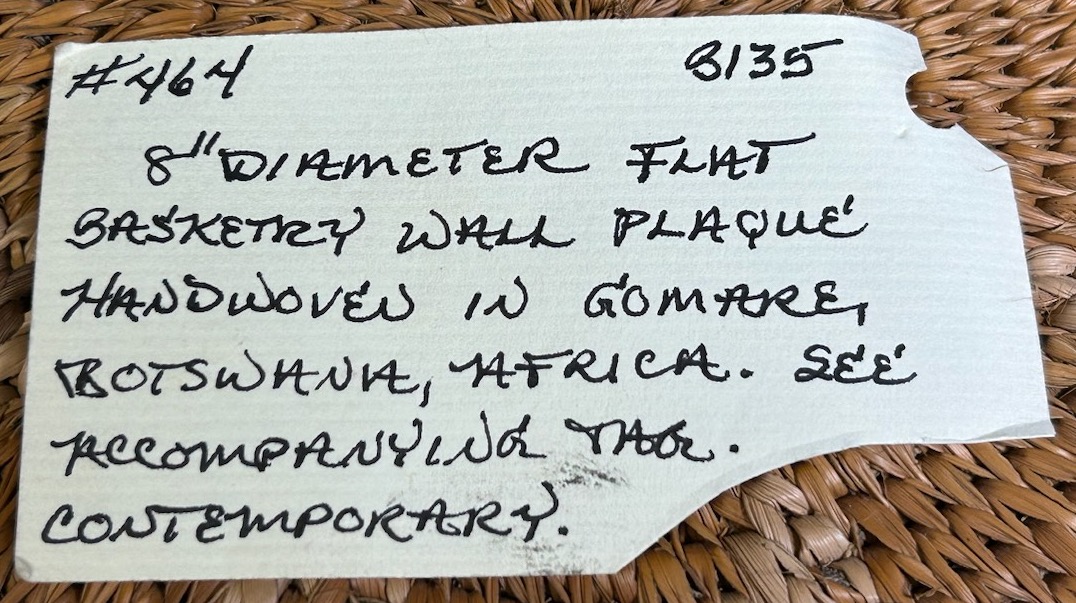 #464 B135
8" DIAMETER FLAT
BASKETRY WALL PLAQUE
HANDWOVEN IN GOMARE,
BOTSWANA, AFRICA. SEE
ACCOMPANYING TAG.
CONTEMPORARY.